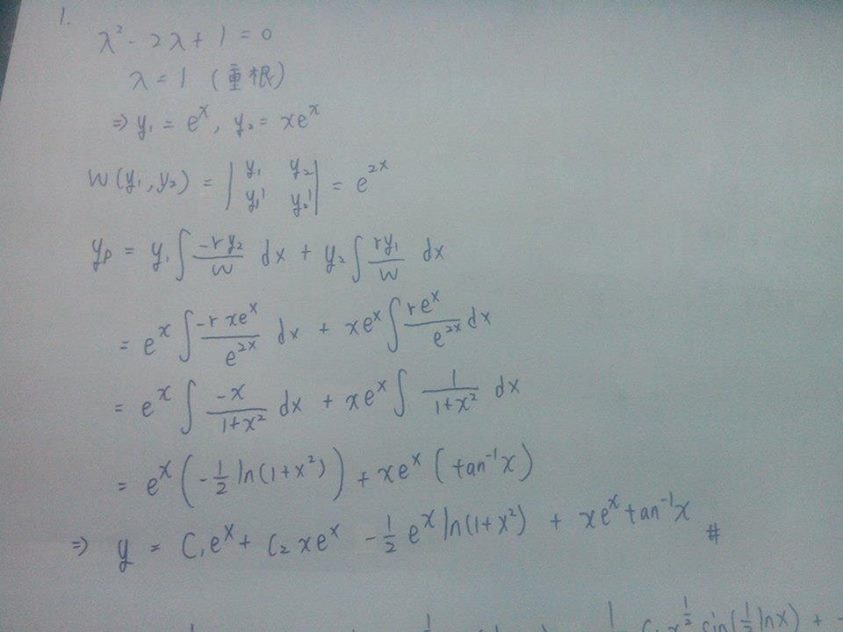 1.
λ² - 2λ + 1 = 0
λ = 1 (重根)
⇒ y₁ = eˣ, y₂ = xeˣ
W(y₁, y₂) = | y₁ y₂ ; y₁' y₂' | = e²ˣ
yp = y₁ ∫ -ry₂/W dx + y₂ ∫ ry₁/W dx
= eˣ ∫ -r xeˣ/e²ˣ dx + xeˣ ∫ reˣ/e²ˣ dx
= eˣ ∫ -x/(1+x²) dx + xeˣ ∫ 1/(1+x²) dx
= eˣ (-½ ln(1+x²)) + xeˣ (tan⁻¹x)
⇒ y = C₁eˣ + C₂ xeˣ -½ eˣ ln(1+x²) + xeˣ tan⁻¹x #
sin(½ lnx) +